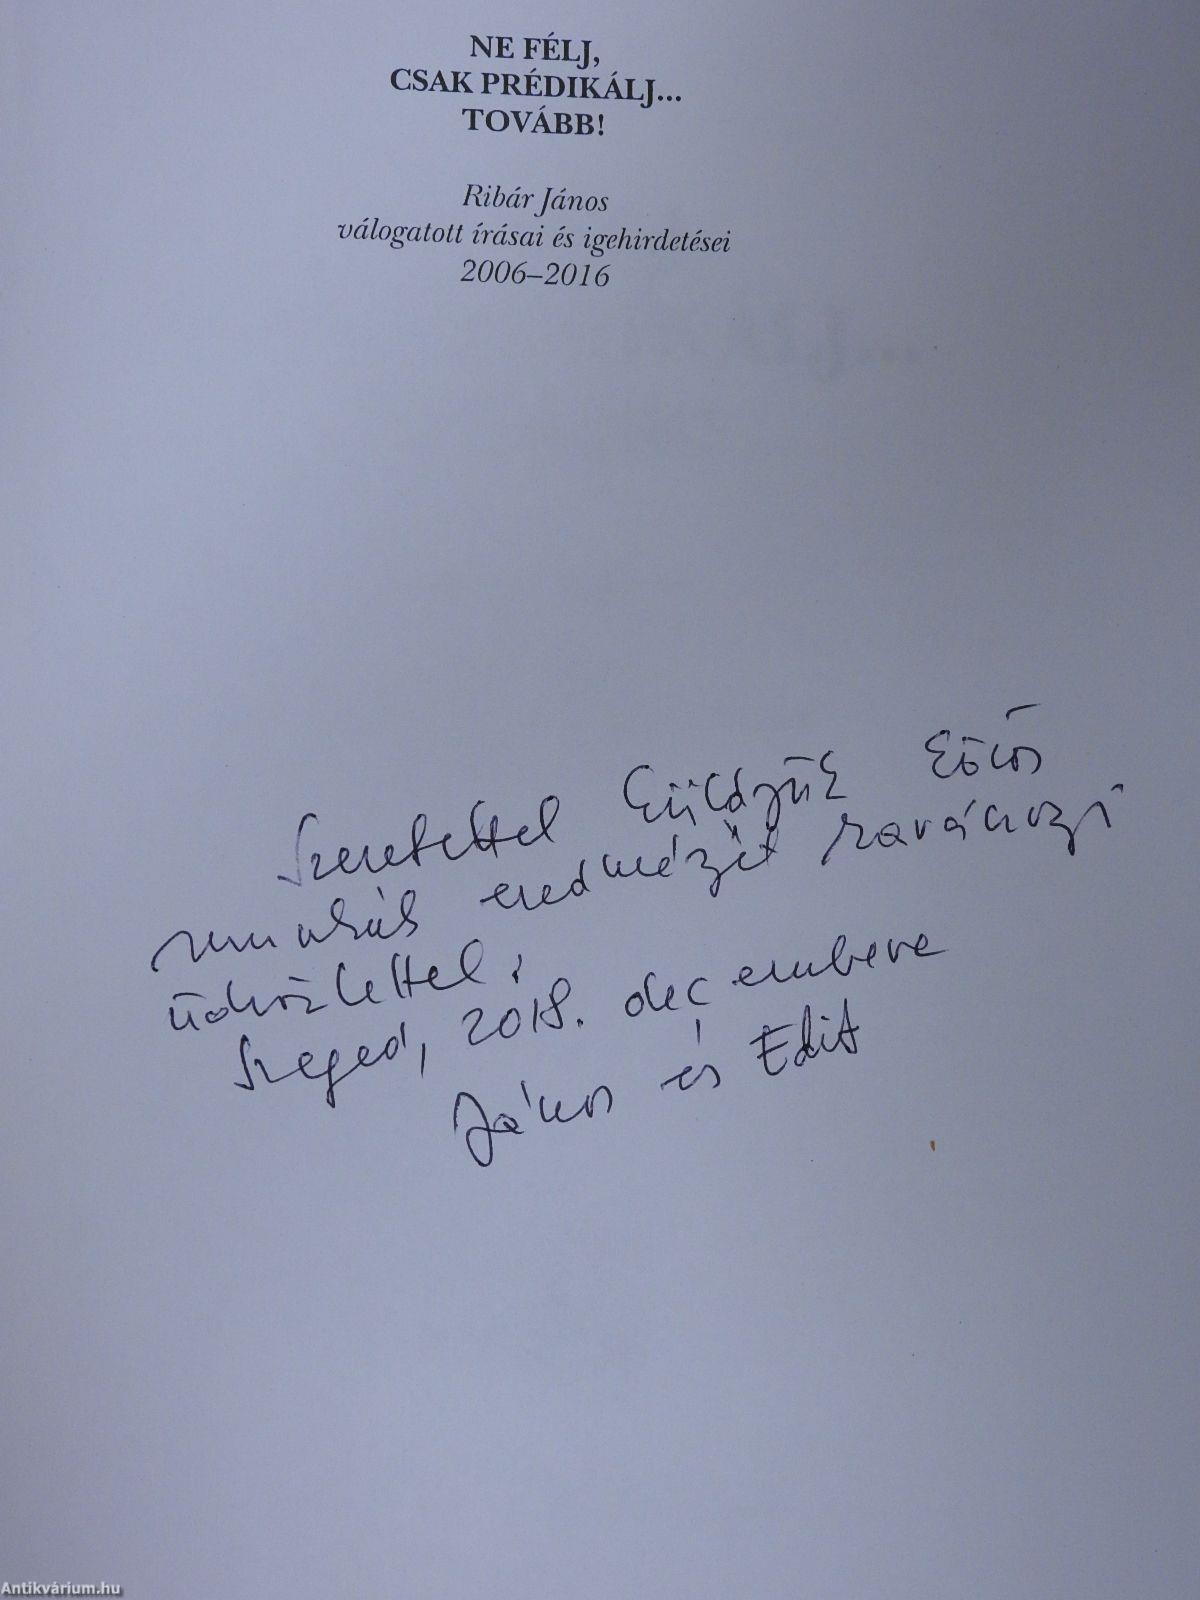 NE FÉLJ,
CSAK PRÉDIKÁLJ...
TOVÁBB!
Ribár János
válogatott írásai és igehirdetései
2006–2016
Szeretettel küldjük közös
munkánk eredményét karácsonyi
üdvözlettel:
Szeged, 2018. decembere
János és Edit
Antikvárium.hu